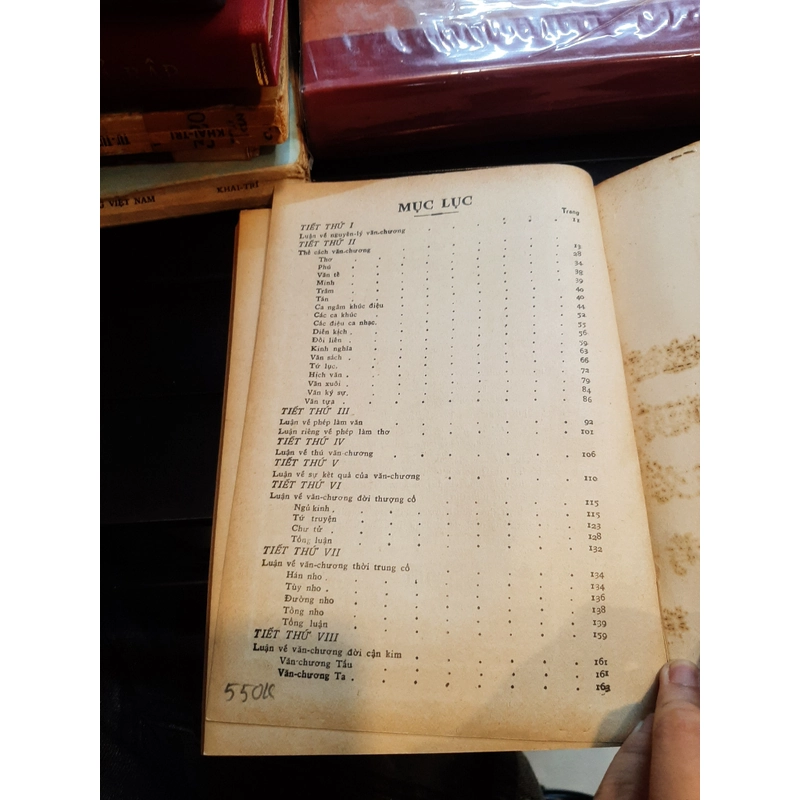 KHAI-TRI
VIỆT NAM
KHAI-TRÍ
MỤC LỤC
Trang
TIẾT THỨ I
Luận về nguyên-lý văn-chương 11
TIẾT THỨ II
Thể cách văn-chương 13
Thơ 28
Phú 34
Văn tế 39
Minh 39
Trâm 40
Tán 40
Ca ngâm khúc điệu 44
Các ca khúc 52
Các điệu ca nhạc. 55
Diễn kịch 56
Đối liễn 59
Kinh nghĩa 63
Văn sách 66
Tứ lục. 72
Hịch văn 79
Văn xuôi 84
Văn ký sự. 86
Văn tựa
TIẾT THỨ III
Luận về phép làm văn 92
Luận riêng về phép làm thơ 101
TIẾT THỨ IV
Luận về thú văn-chương 106
TIẾT THỨ V
Luận về sự kết quả của văn-chương 110
TIẾT THỨ VI
Luận về văn-chương đời thượng cổ 115
Ngũ kinh 115
Tứ truyện 123
Chư tử 128
Tổng luận 132
TIẾT THỨ VII
Luận về văn-chương thời trung cổ 134
Hán nho 134
Tùy nho 136
Đường nho 138
Tống nho 139
Tổng luận 159
TIẾT THỨ VIII
Luận về văn-chương đời cận kim 161
Văn-chương Tầu 161
Văn-chương Ta 163
550k